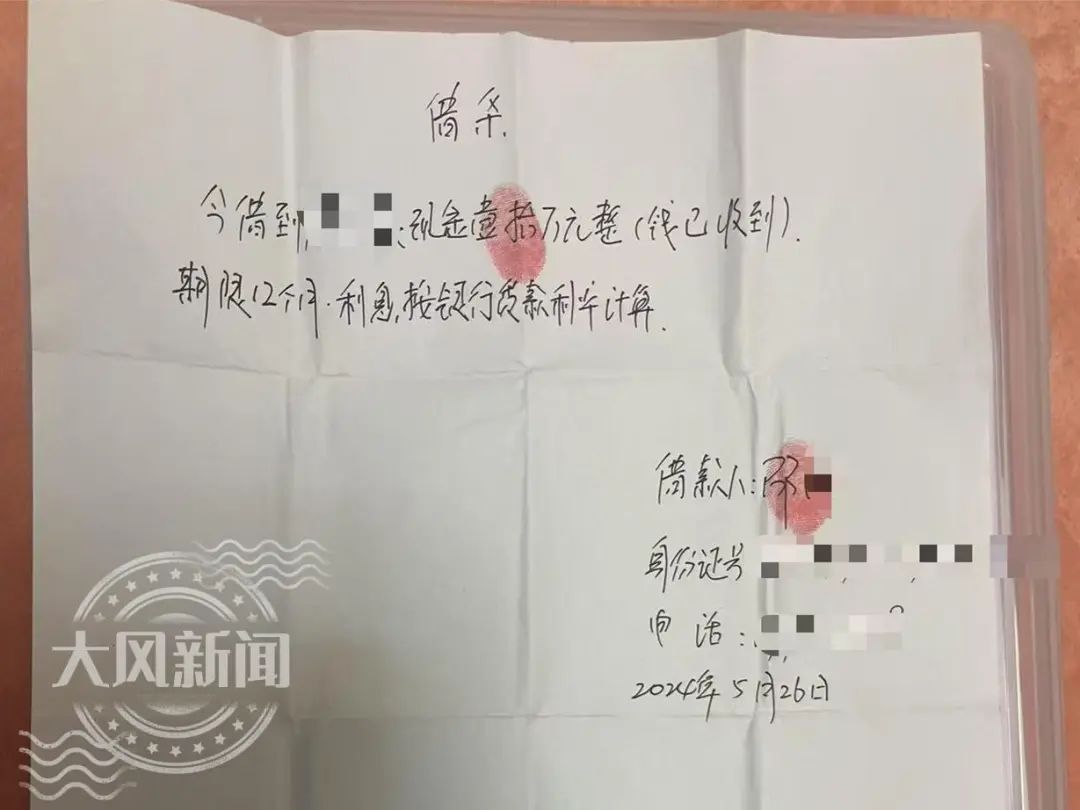 借条.
今借到 :现金壹拾万元整(钱已收到).
期限12个月.利息,按银行贷款利率计算.
借款人:邵
身份证号
电话:
2024年5月26日
大风新闻